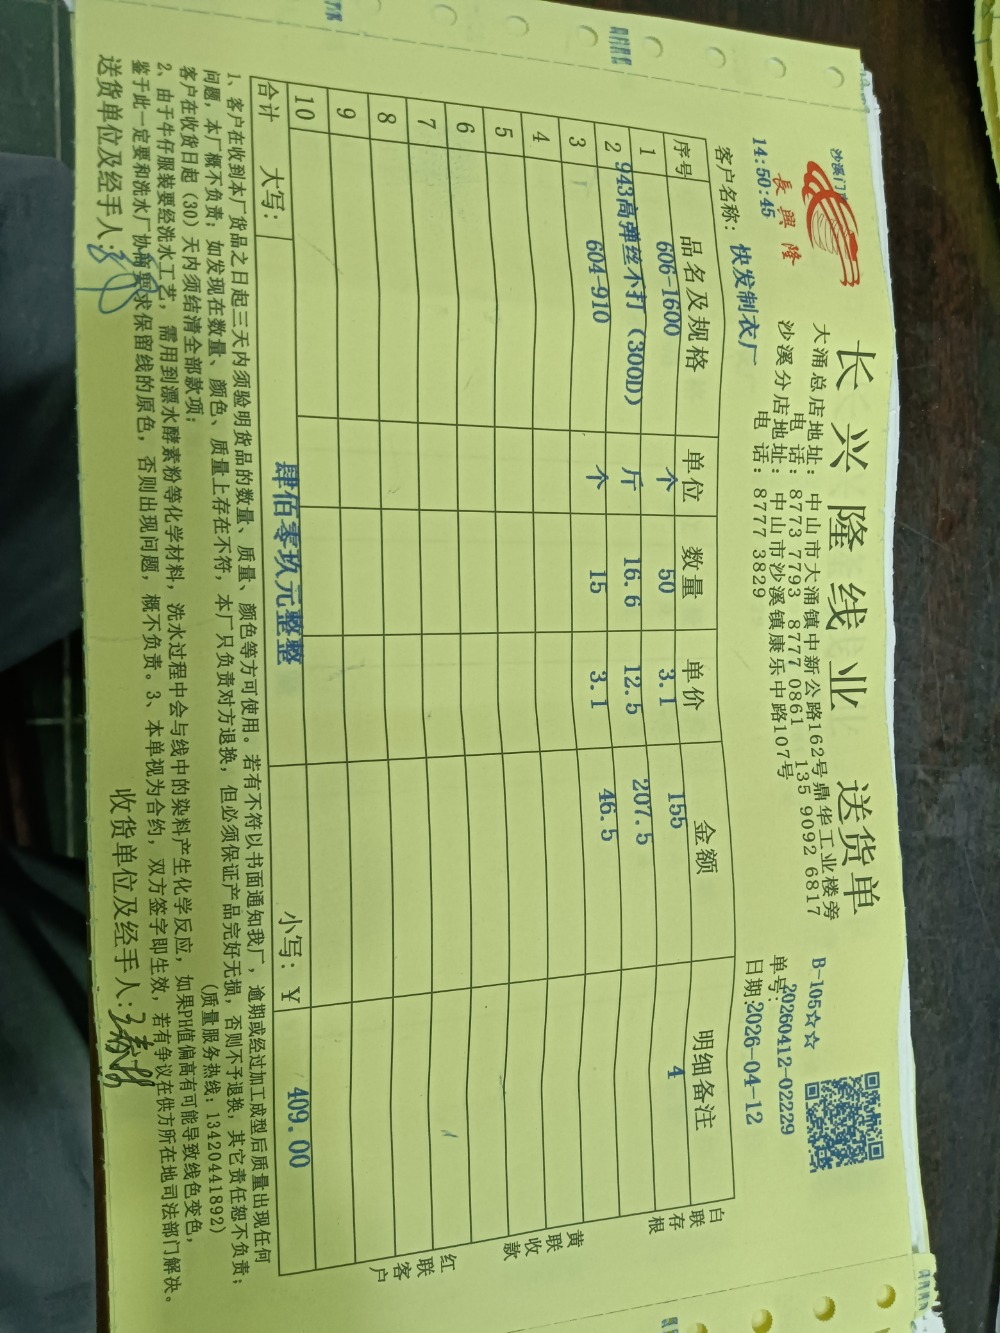 長興隆
沙溪门
长兴隆线业 送货单
大涌总店地址：中山市大涌镇中新公路162号鼎华工业楼旁
电 话：8773 7793 8777 0861 135 9092 6817
沙溪分店地址：中山市沙溪镇康乐中路107号
电 话：8777 3829
B-105☆☆
单号：20260412-02229
日期：2026-04-12
14:50:45
客户名称：快发制衣厂
序号 品名及规格 单位 数量 单价 金额 明细备注
1 606-1600 个 50 3.1 155 4
2 943高弹丝不打（300D） 斤 16.6 12.5 207.5
3 604-910 个 15 3.1 46.5
4
5
6
7
8
9
10
合计 大写：肆佰零玖元整整 小写：￥ 409.00
白联存根
黄联收款
红联客户
1、客户在收到本厂货品之日起三天内须验明货品的数量、质量、颜色等方可使用。若有不符以书面通知我厂，逾期或经过加工成型后质量出现任何
问题，本厂概不负责；如发现在数量、颜色、质量上存在不符，本厂只负责对方退换，但必须保证产品完好无损，否则不予退换，其它责任恕不负责；
客户在收货日起（30）天内须结清全部款项； （质量服务热线：13420441892）
2、由于牛仔服装要经洗水工艺，需用到漂水酵素粉等化学材料，洗水过程中会与线中的染料产生化学反应，如果PH值偏高有可能导致线色变色，
鉴于此一定要和洗水厂协商要求保留线的原色，否则出现问题，概不负责。3、本单视为合约，双方签字即生效，若有争议在供方所在地司法部门解决。
送货单位及经手人： 收货单位及经手人：